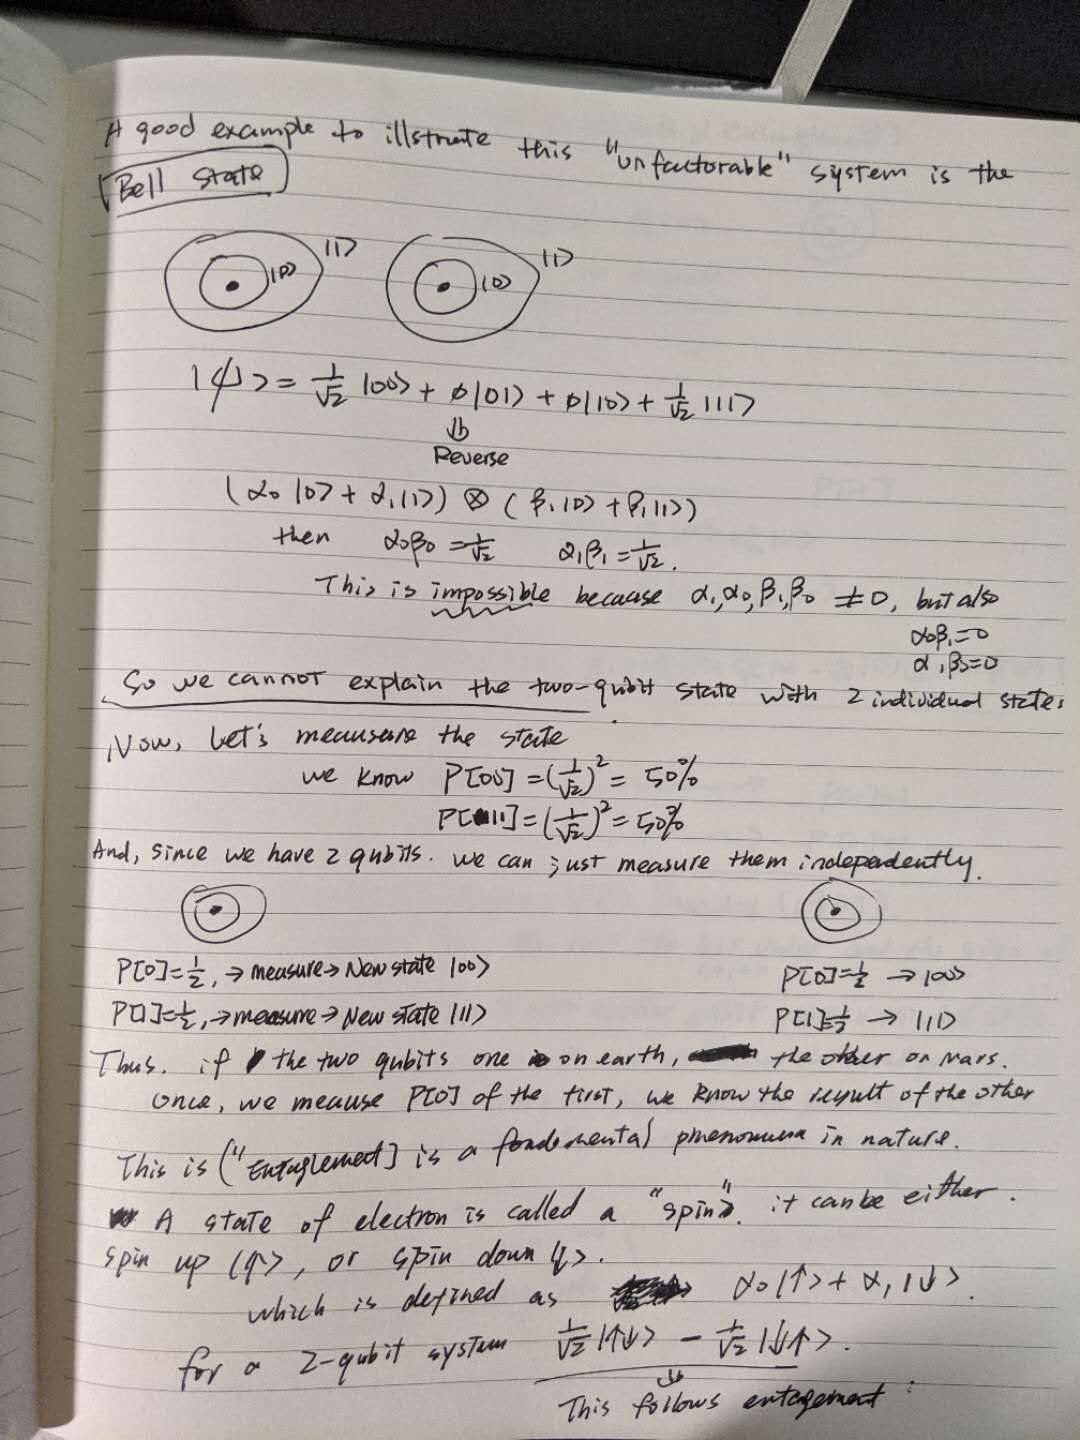 A good example to illstrate this "unfactorable" system is the
Bell state
|1> |1>
|0> |0>
|ψ> = 1/√2 |00> + 0|01> + 0|10> + 1/√2 |11>
⇓
Reverse
(α₀|0> + α₁|1>) ⊗ (β₁|0> + β₁|1>)
then α₀β₀ = 1/√2 α₁β₁ = 1/√2.
This is impossible because α₁,α₀,β₁,β₀ ≠ 0, but also
α₀β₁=0
α₁β₀=0
So we cannot explain the two-qubit state with 2 individual states
Now, Let's meausure the state
we know P[00] = (1/√2)² = 50%
P[11] = (1/√2)² = 50%
And, since we have 2 qubits. we can just measure them independently.
P[0]=1/2, → measure → New state |00> P[0]=1/2 → |00>
P[1]=1/2, → measure → New state |11> P[1]=1/2 → |11>
Thus. if the two qubits one on earth, the other on Mars.
once, we meause P[0] of the first, we know the result of the other
This is ["Entaglement] is a fondemental phenomena in nature.
A state of electron is called a "spin". it can be either.
spin up |↑>, or spin down |↓>.
which is defined as α₀|↑> + α₁|↓>.
for a 2-qubit system 1/√2 |↑↓> − 1/√2 |↓↑>.
⇓
This follows entagement